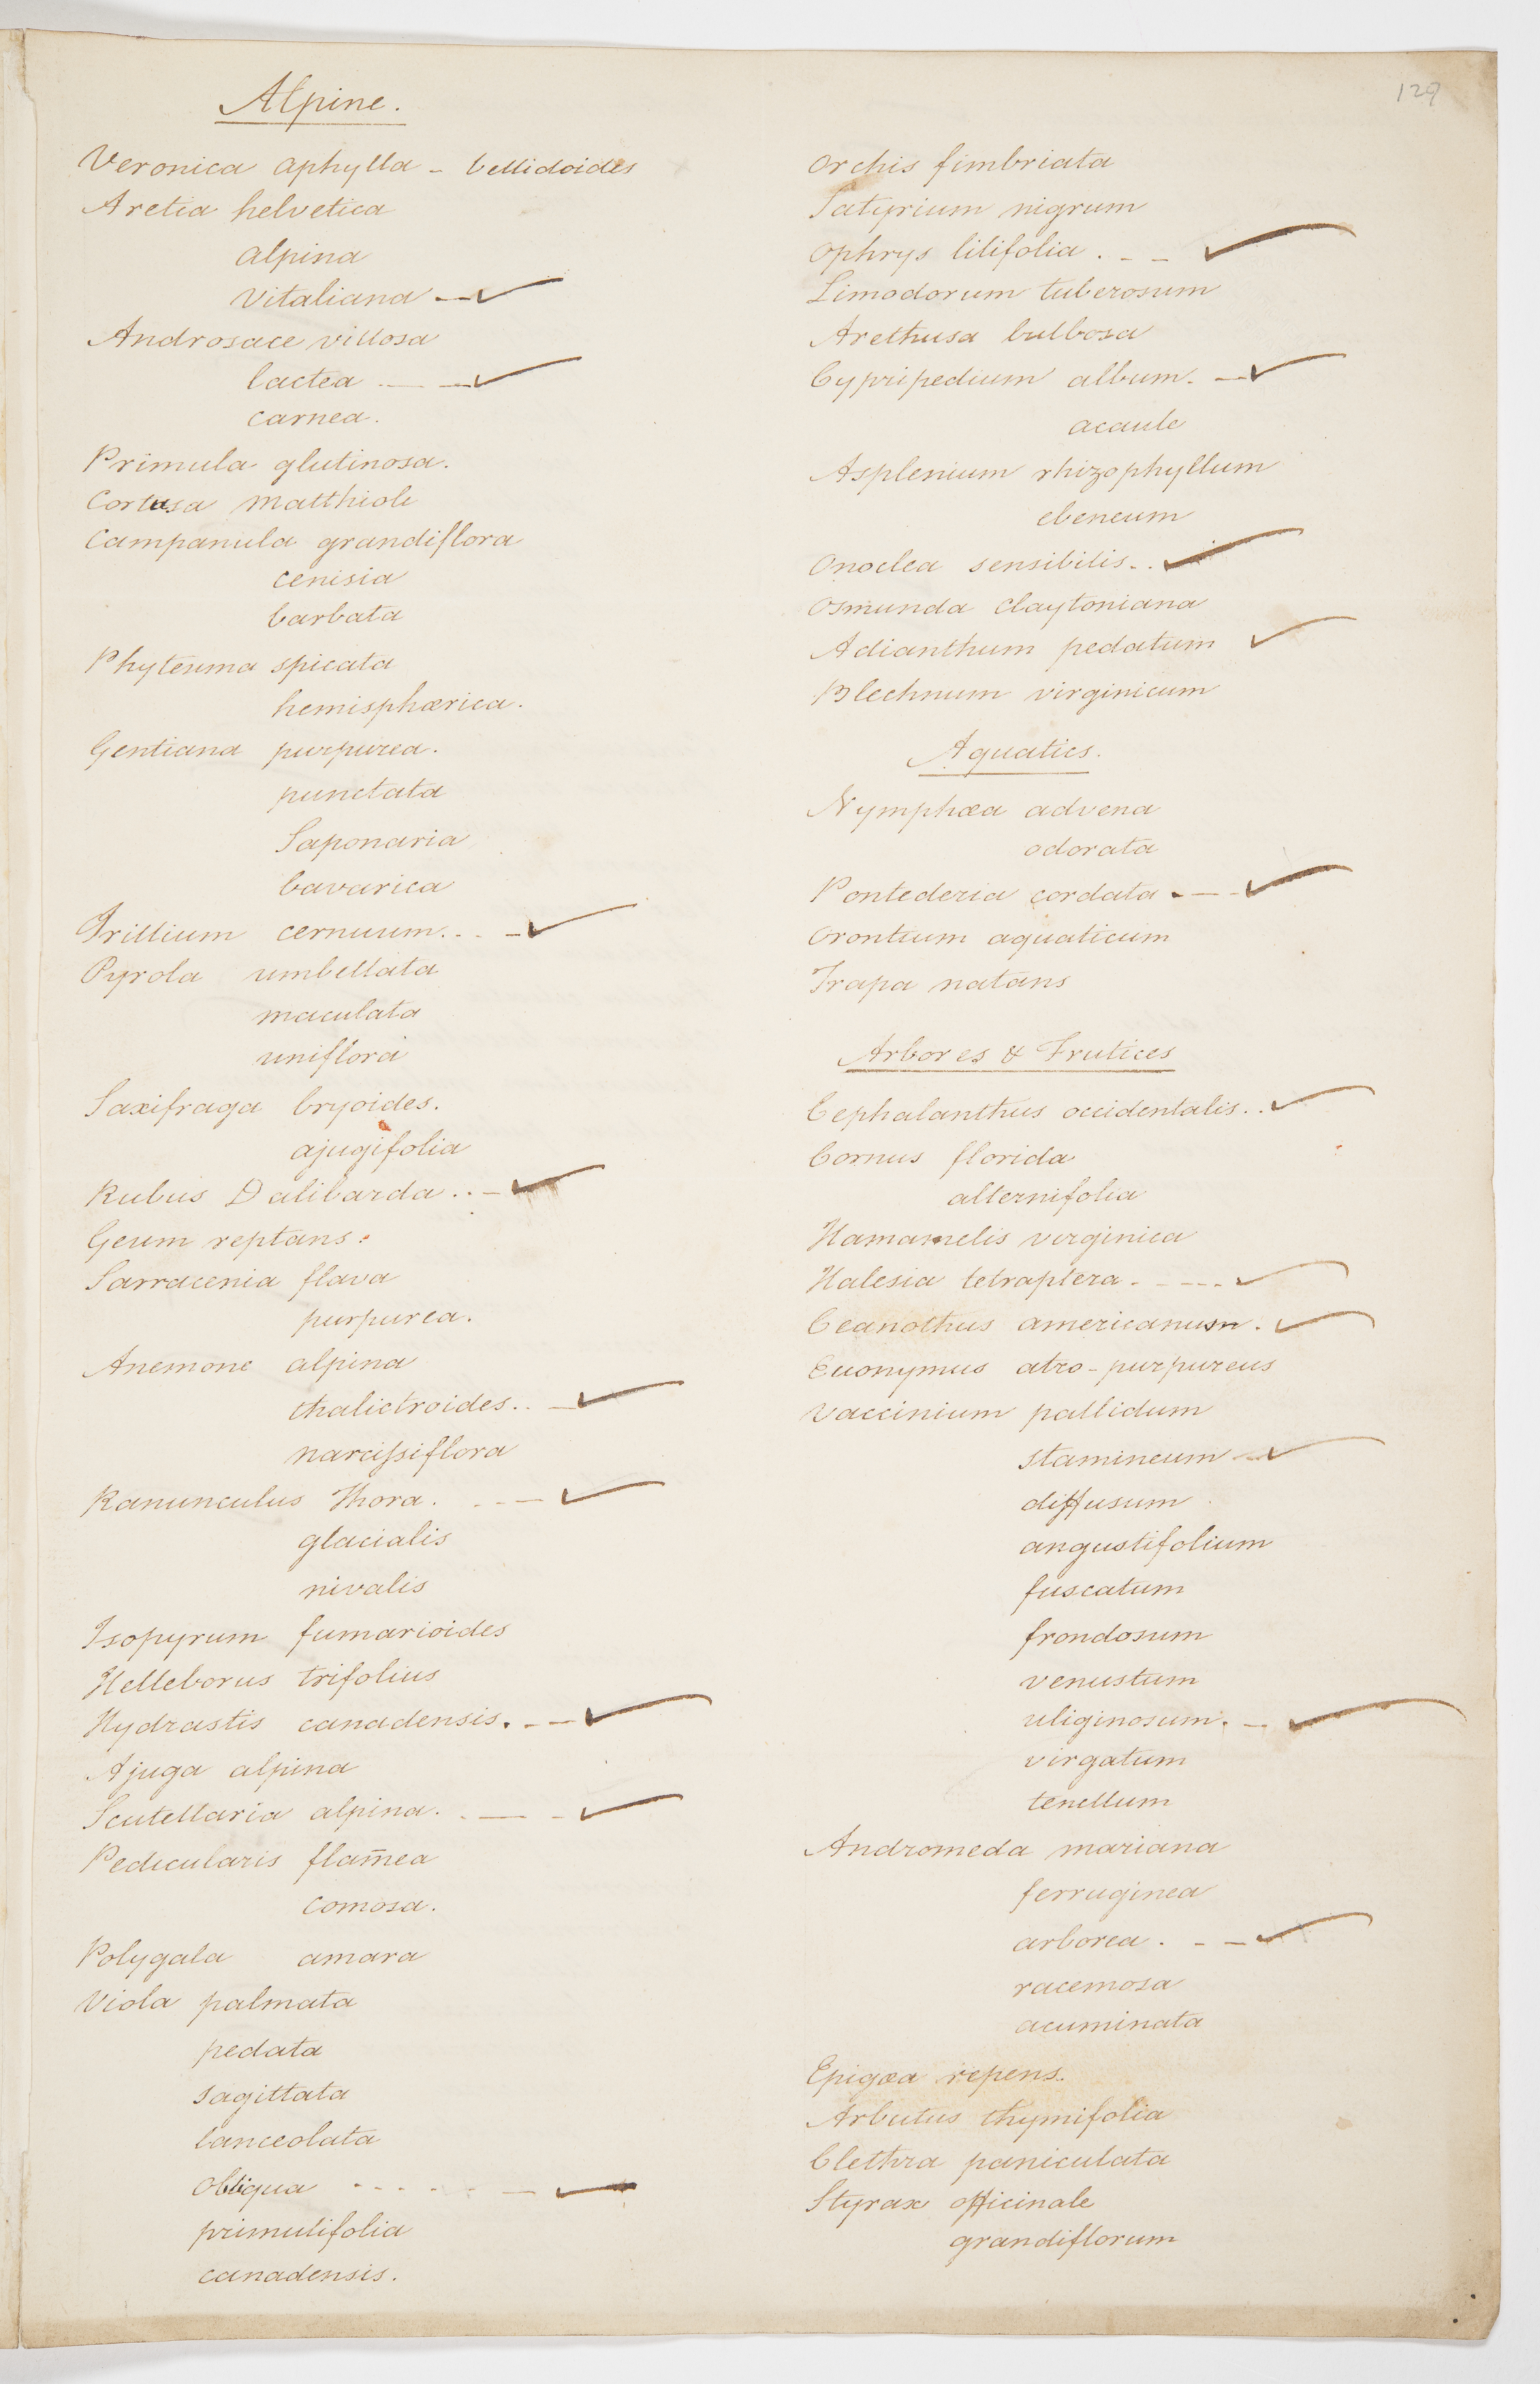 129
Alpine.
Veronica aphylla - bellidoides
Aretia helvetica
alpina
Vitaliana - ✓
Androsace villosa
lactea - - ✓
carnea.
Primula glutinosa.
Cortusa Matthioli
Campanula grandiflora
cenisia
barbata
Phyteuma spicata
hemisphærica.
Gentiana purpurea.
punctata
Saponaria
bavarica
Trillium cernuum. . . - ✓
Pyrola umbellata
maculata
uniflora
Saxifraga bryoides.
ajugifolia
Rubus Dalibarda . . - ✓
Geum reptans.
Sarracenia flava
purpurea.
Anemone alpina
thalictroides . . - ✓
narcissiflora
Ranunculus Thora. - - - ✓
glacialis
nivalis
Isopyrum fumarioides
Helleborus trifolius
Hydrastis canadensis. - - ✓
Ajuga alpina
Scutellaria alpina. . - - ✓
Pedicularis flam̄ea
comosa.
Polygala amara
Viola palmata
pedata
sagittata
lanceolata
obliqua . . . . . - ✓
primulifolia
canadensis.
Orchis fimbriata
Satyrium nigrum
Ophrys lilifolia . - - ✓
Limodorum tuberosum
Arethusa bulbosa
Cypripedium album. - ✓
acaule
Asplenium rhizophyllum
ebeneum
Onoclea sensibilis . . ✓
Osmunda claytoniana
Adianthum pedatum ✓
Blechnum virginicum
Aquatics.
Nymphæa advena
odorata
Pontederia cordata . - - ✓
Orontium aquaticum
Trapa natans
Arbores & Frutices
Cephalanthus occidentalis . . ✓
Cornus florida
alternifolia
Hamamelis virginica
Halesia tetraptera . - - - ✓
Ceanothus americanum . ✓
Euonymus atro-purpureus
Vaccinium pallidum
stamineum - ✓
diffusum
angustifolium
fuscatum
frondosum
venustum
uliginosum. - ✓
virgatum
tenellum
Andromeda mariana
ferruginea
arborea . - - ✓
racemosa
acuminata
Epigæa repens.
Arbutus thymifolia
Clethra paniculata
Styrax officinale
grandiflorum